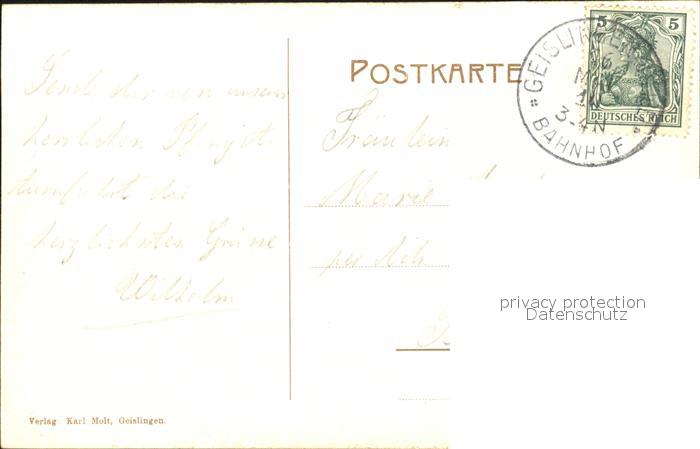 POSTKARTE
5 5
DEUTSCHES REICH
GEISLINGEN
3-4N
BAHNHOF
Sende dir von unserer
herrlichen Pfingst
turnfahrt die
herzlichsten Grüsse
Wilhelm
Fräulein
Marie
per Adr.
privacy protection
Datenschutz
Verlag: Karl Molt, Geislingen.